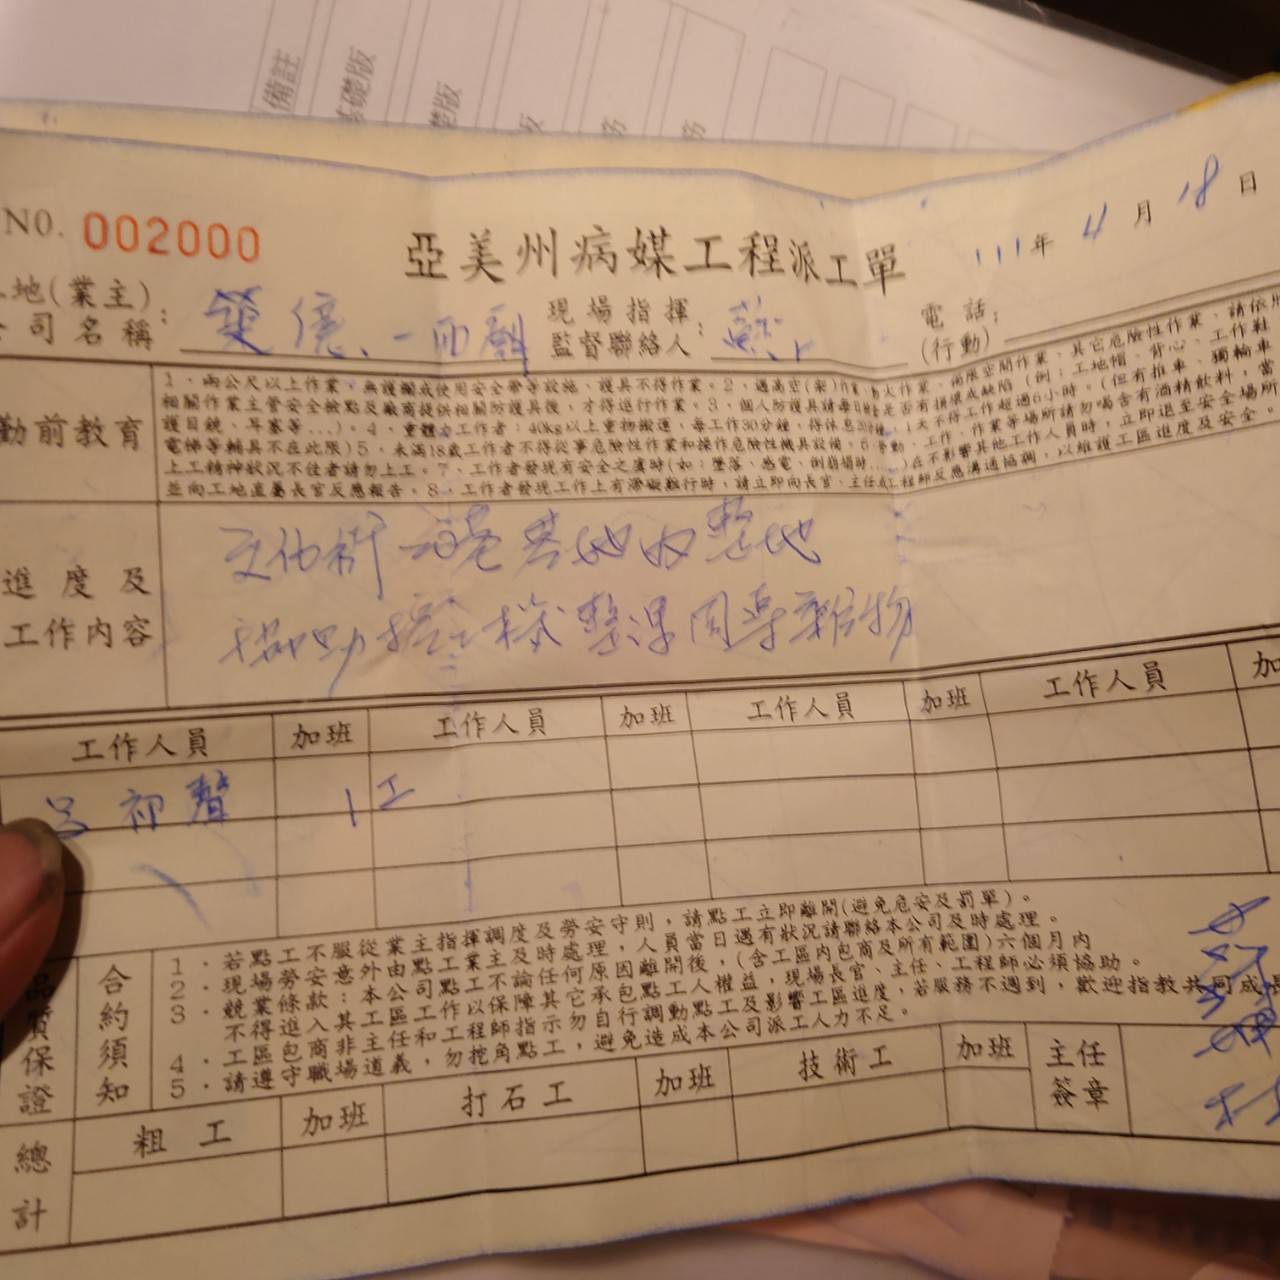 備註
基礎版
NO. 002000
亞美州病媒工程派工單
111年 4月 18日
工地(業主)
公司名稱:
億、一
現場指揮
監督聯絡人: 蘇
電話:
(行動)
勤前教育
1、兩公尺以上作業、無護欄或使用安全帶等設施、護具不得作業。2、遇高空(架)作業、動火作業、侷限空間作業、其它危險性作業、請依照
相關作業主管安全檢點及廠商提供相關防護具後,才得進行作業。3、個人防護具請每日檢點是否有損壞或缺陷(例:工地帽、背心、工作鞋
護目鏡、耳塞等...)。4、重體力工作者:40kg以上重物搬運,每工作30分鐘,得休息30分鐘,1天不得工作超過6小時。(但有推車、獨輪車
電梯等輔具不在此限)5、未滿18歲工作者不得從事危險性作業和操作危險性機具設備。6、勞動、工作、作業等場所請勿喝含有酒精飲料,當
上工精神狀況不佳者請勿上工。7、工作者發現有安全之虞時(如:墜落、感電、倒崩塌時....)在不影響其他工作人員時,立即退至安全場所
並向工地直屬長官反應報告。8、工作者發現工作上有滯礙難行時,請立即向長官、主任或工程師反應溝通協調,以維護工區進度及安全。
進度及
工作內容
文化街 基地內整地
協助挖土機整理周專雜物
工作人員 加班 工作人員 加班 工作人員 加班 工作人員 加
呂初聲 1工
品質保證
合約須知
1．若點工不服從業主指揮調度及勞安守則，請點工立即離開(避免危安及罰單)。
2．現場勞安意外由點工業主及時處理，人員當日遇有狀況請聯絡本公司及時處理。
3．競業條款:本公司點工不論任何原因離開後，(含工區內包商及所有範圍)六個月內
不得進入其工區工作以保障其它承包點工人權益，現場長官、主任、工程師必須協助。
4．工區包商非主任和工程師指示勿自行調動點工及影響工區進度，若服務不週到，歡迎指教共同成長
5．請遵守職場道義，勿挖角點工，避免造成本公司派工人力不足。
總計
粗工 加班 打石工 加班 技術工 加班 主任
簽章